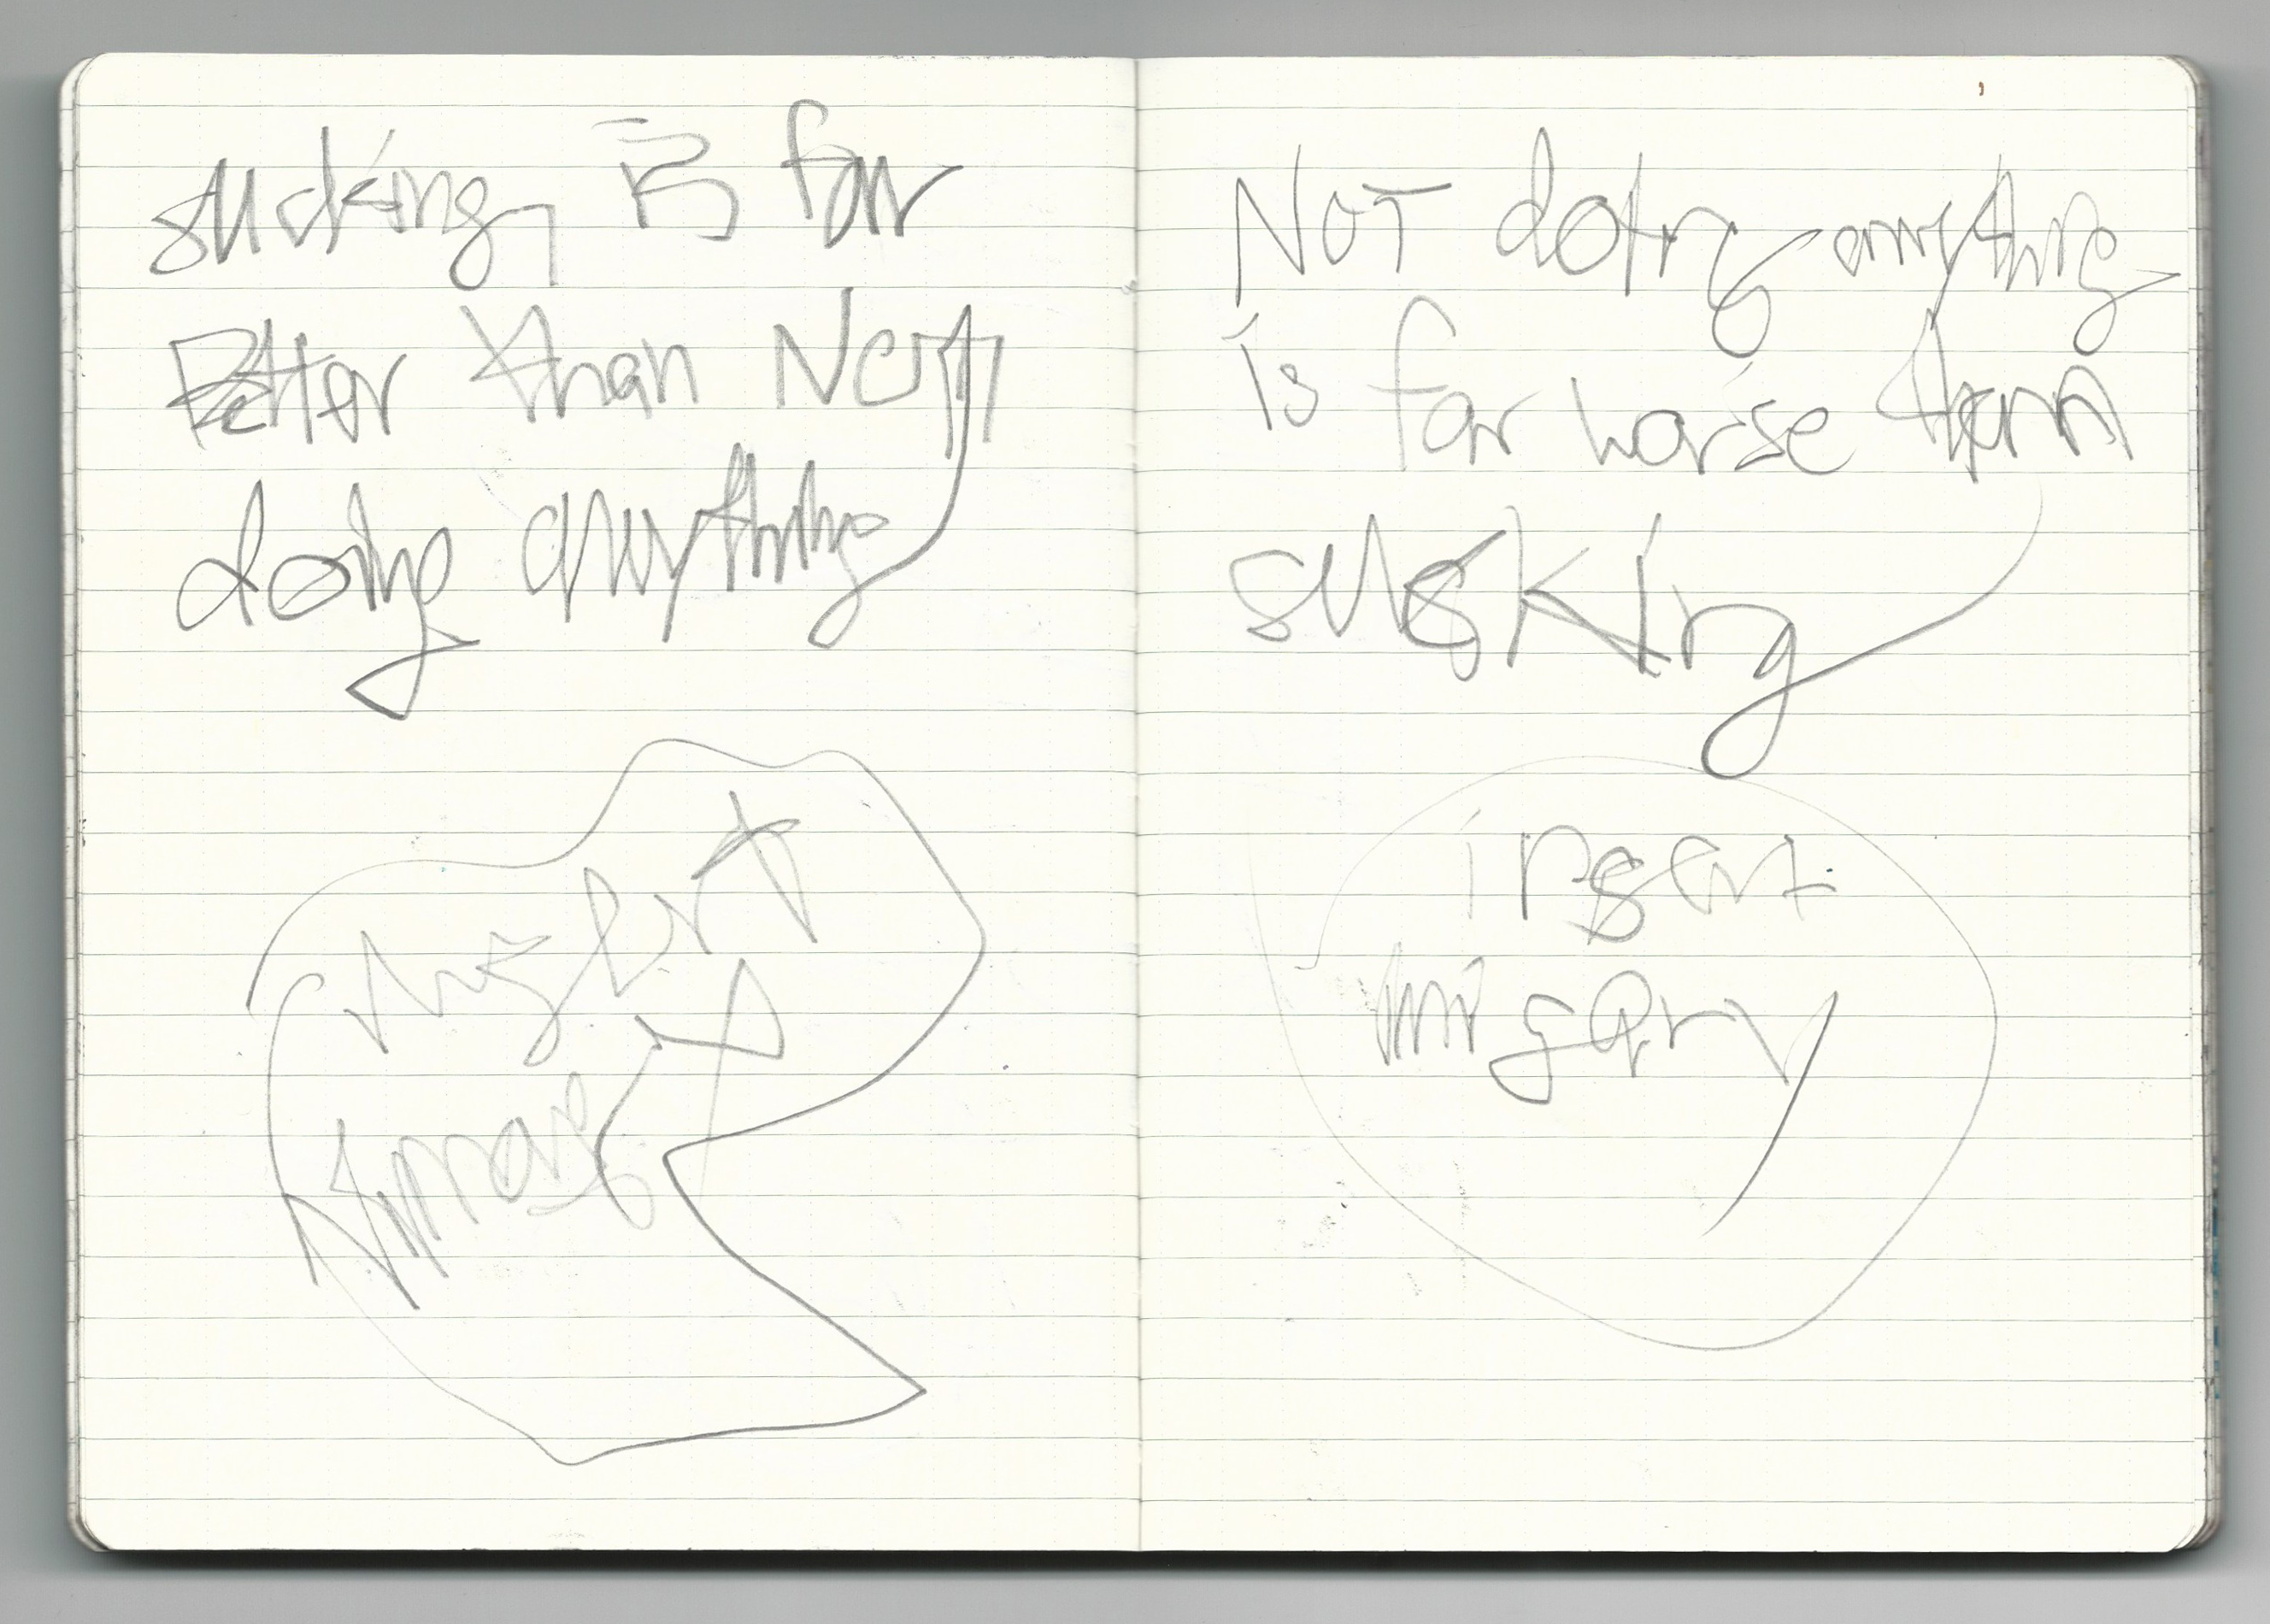 sucking is far
Better than Not
doing anything
insert
image
NOT doing anything
is far worse than
sucking
insert